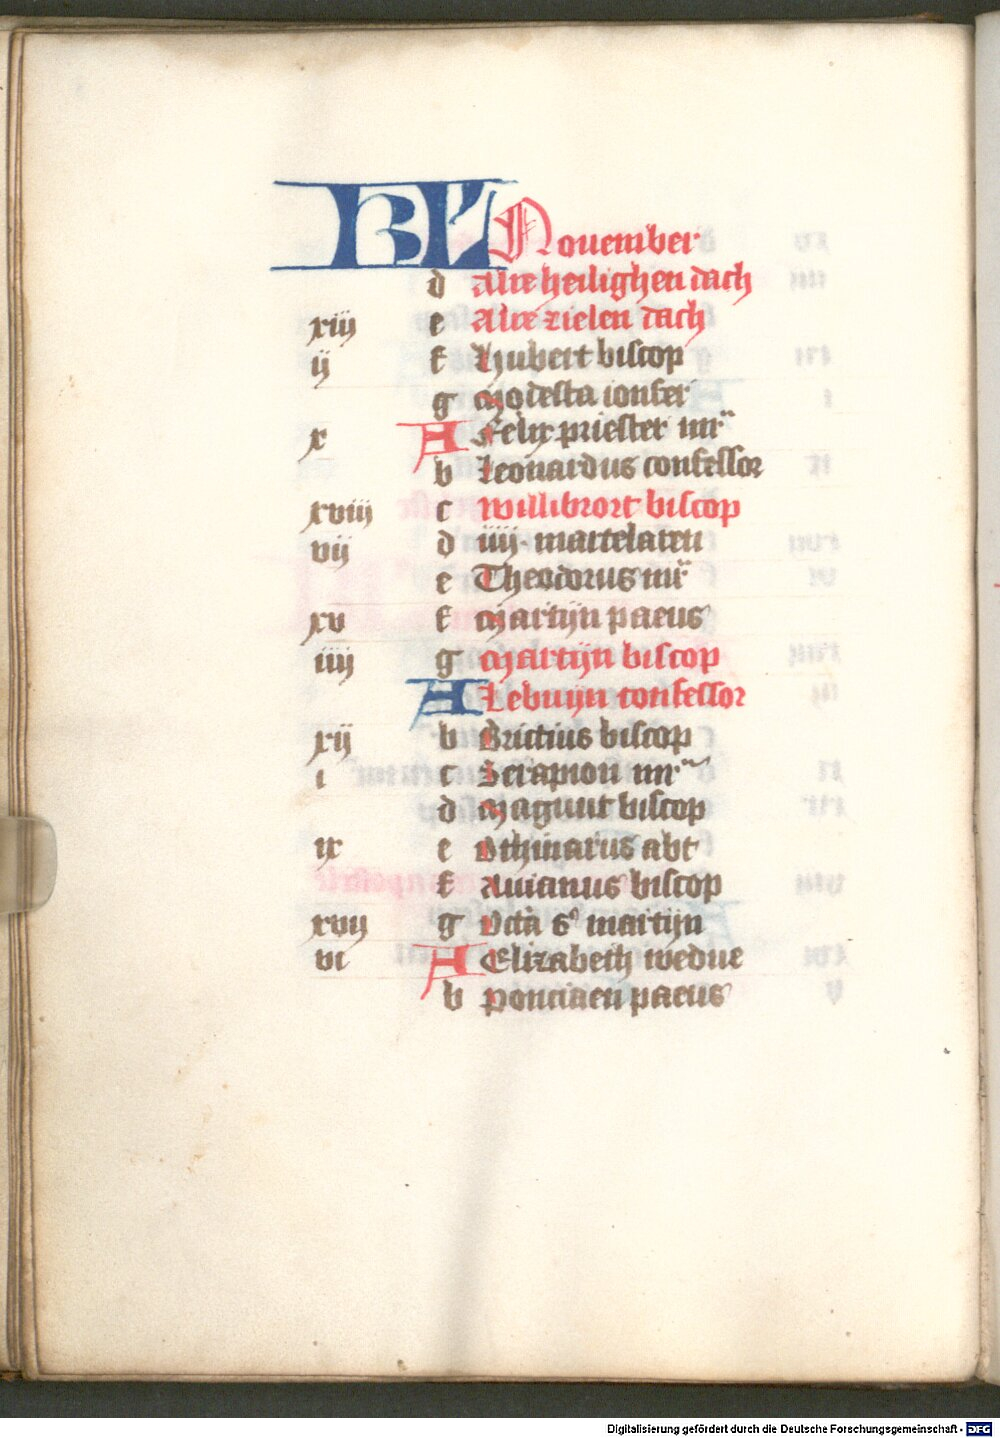 KL November
d Alre heilighen dach
xiij e Alre zielen dach
ij f Hubert biscop
g Modesta ionfer
x A Felix priester mr
b Leonardus confessor
xviij c Willibrort biscop
vij d iiij martelaren
e Theodorus mr
xv f Martijn paeus
iiij g Martijn biscop
A Lebuyn confessor
xij b Brictius biscop
i c Serapion mr
d Magunt biscop
ix e Othmarus abt
f Anianus biscop
xvij g Octa s martijn
vi A Elizabeth wedue
b Ponciaen paeus
Digitalisierung gefördert durch die Deutsche Forschungsgemeinschaft - DFG